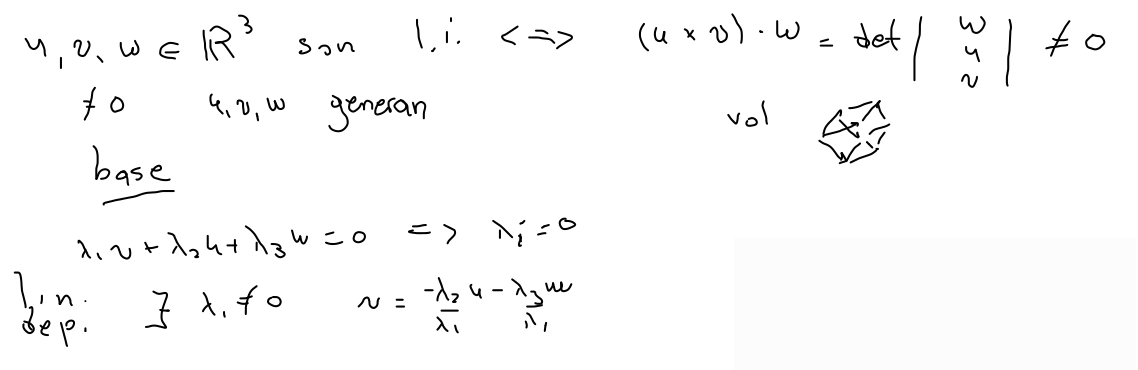 u, v, w ∈ ℝ³ son l.i. <=> (u × v) · w = det | w u v | ≠ 0
≠ 0 u, v, w generan
vol
base
λ₁ v + λ₂ u + λ₃ w = 0 => λᵢ = 0
lin. dep. ∃ λ₁ ≠ 0 v = -λ₂/λ₁ u - λ₃/λ₁ w